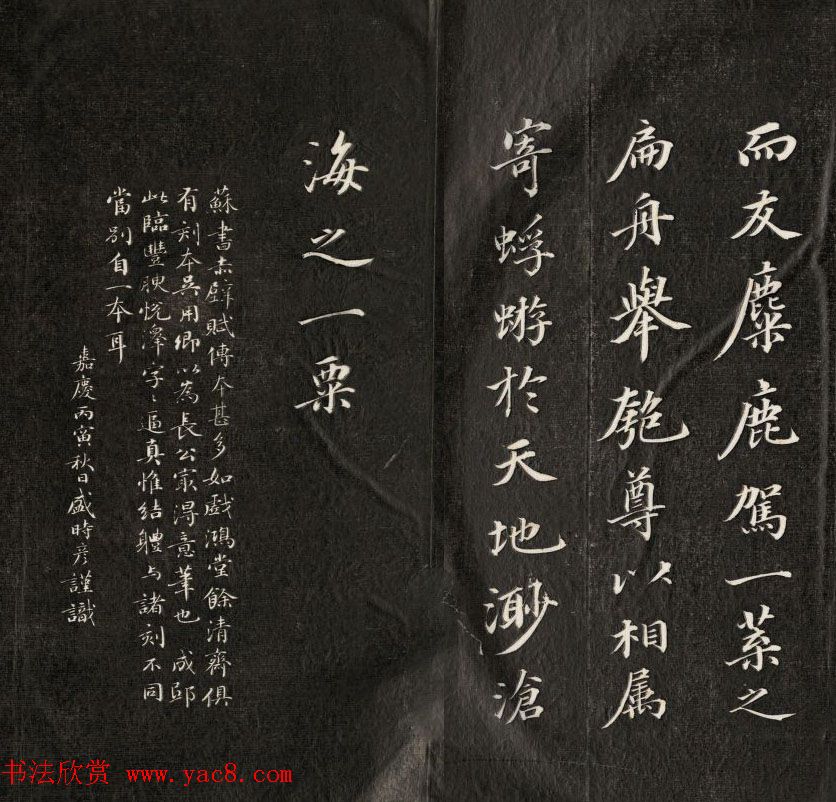 而友麋鹿駕一葉之
扁舟舉匏尊以相属
寄蜉蝣於天地渺滄
海之一粟
蘇書赤壁賦傳本甚多如戲鴻堂餘清齋俱
有刻本吳用卿以為長公最得意筆也成邸
此臨豐腴悅澤字〻逼真惟結體与諸刻不同
當別自一本耳
嘉慶丙寅秋日盛時彦謹識
书法欣赏 www.yac8.com